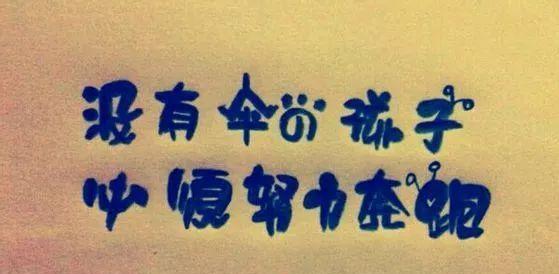 没有伞の孩子
必须努力奔跑